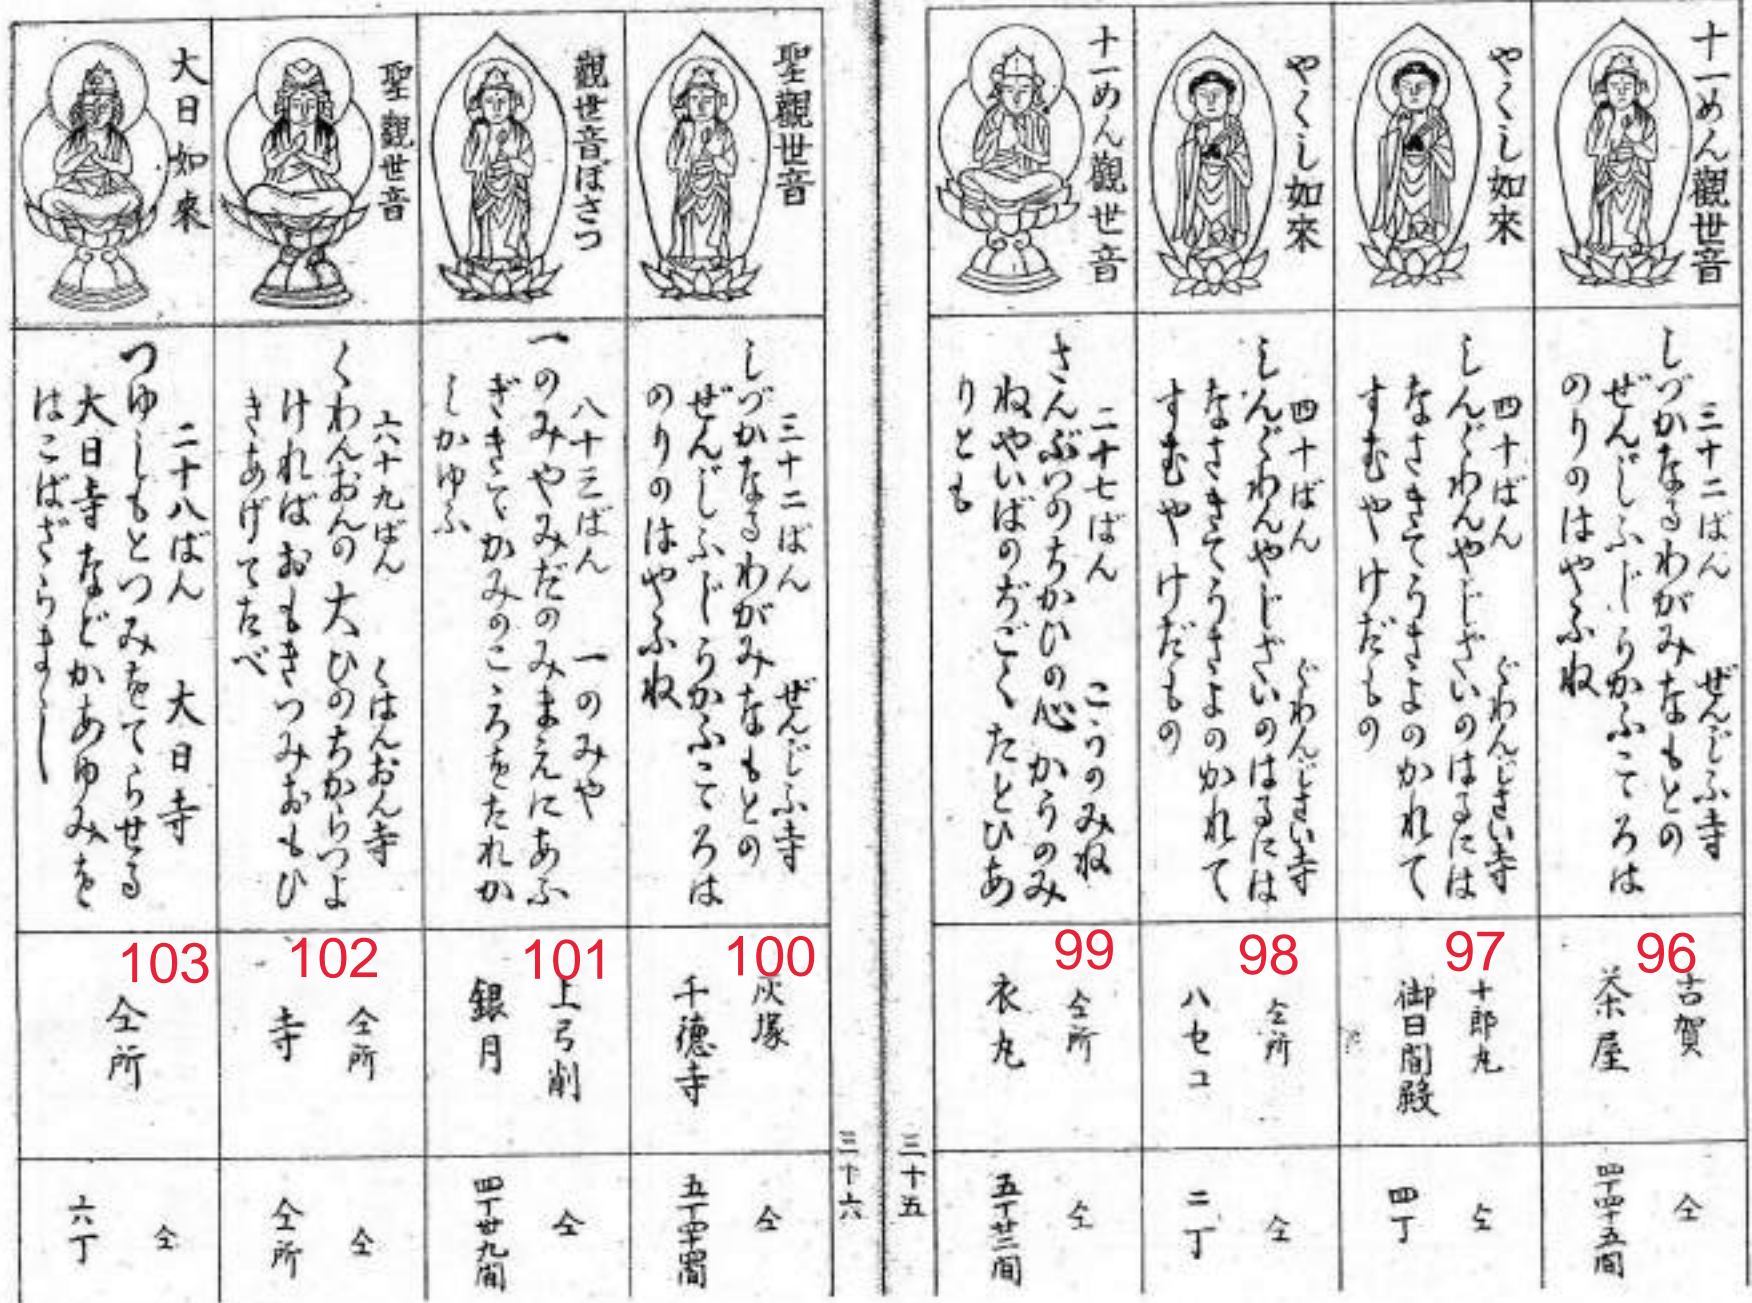 十一めん觀世音
三十二ばん　ぜんじふ寺
しづかなるわがみなもとの
ぜんじふじうかふころは
のりのはやふね
96
古賀
茶屋
仝
四丁四十五間
やくし如來
四十ばん　ぐわんじざい寺
しんぐわんやじざいのはるには
なさきてうきよのかれて
すむやけだもの
97
十郎丸
御日間殿
仝
四丁
やくし如來
四十ばん　ぐわんじざい寺
しんぐわんやじざいのはるには
なさきてうきよのかれて
すむやけだもの
98
仝所
ハセコ
仝
二丁
十一めん觀世音
二十七ばん　こうのみね
さんぶつのちかひの心かうのみ
ねやいばのぢごくたとひあ
りとも
99
仝所
衣丸
仝
五丁廿二間
三十五
三十六
聖觀世音
三十二ばん　ぜんじふ寺
しづかなるわがみなもとの
ぜんじふじうかふころは
のりのはやふね
100
灰塚
千德寺
仝
觀世音ぼさつ
八十三ばん　一のみや
一のみやみだのみまえにあふ
ぎきてかみのこゝろをたれか
しかゆふ
101
上弓削
銀月
仝
四丁廿九間
聖觀世音
六十九ばん　くはんおん寺
くわんおんの大ひのちからつよ
ければおもきつみおもひ
きあげてたべ
102
仝所
寺
仝
仝所
大日如來
二十八ばん　大日寺
つゆしもとつみをてらせる
大日寺などかあゆみを
はこばざらまし
103
仝所
仝
六丁